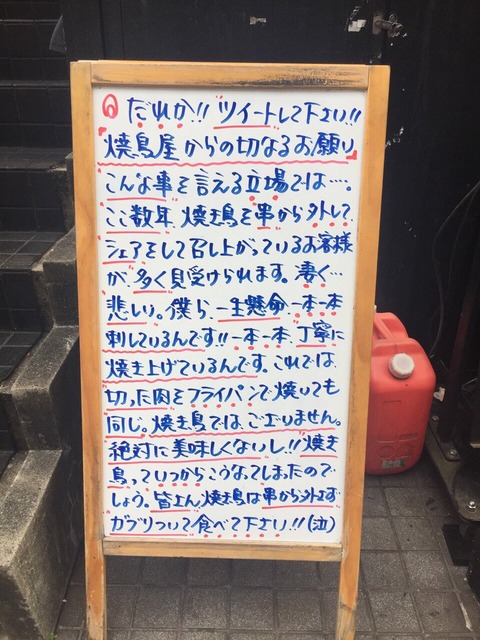 だれか!! ツイートして下さい!!
焼鳥屋からの切なるお願い
こんな事を言える立場では…。
ここ数年、焼き鳥を串から外して
シェアをして召し上がっているお客様
が、多く見受けられます。凄く…
悲しい。僕ら、一生懸命、一本一本
刺しているんです!! 一本一本、丁寧に
焼き上げているんです。これでは、
切った肉をフライパンで焼いても
同じ。焼き鳥では、ございません。
絶対に美味しくないし!! 焼き
鳥っていつからこうなってしまったので
しょう。皆さん、焼き鳥は串から外さず
ガブリついて食べて下さい!!(泣)